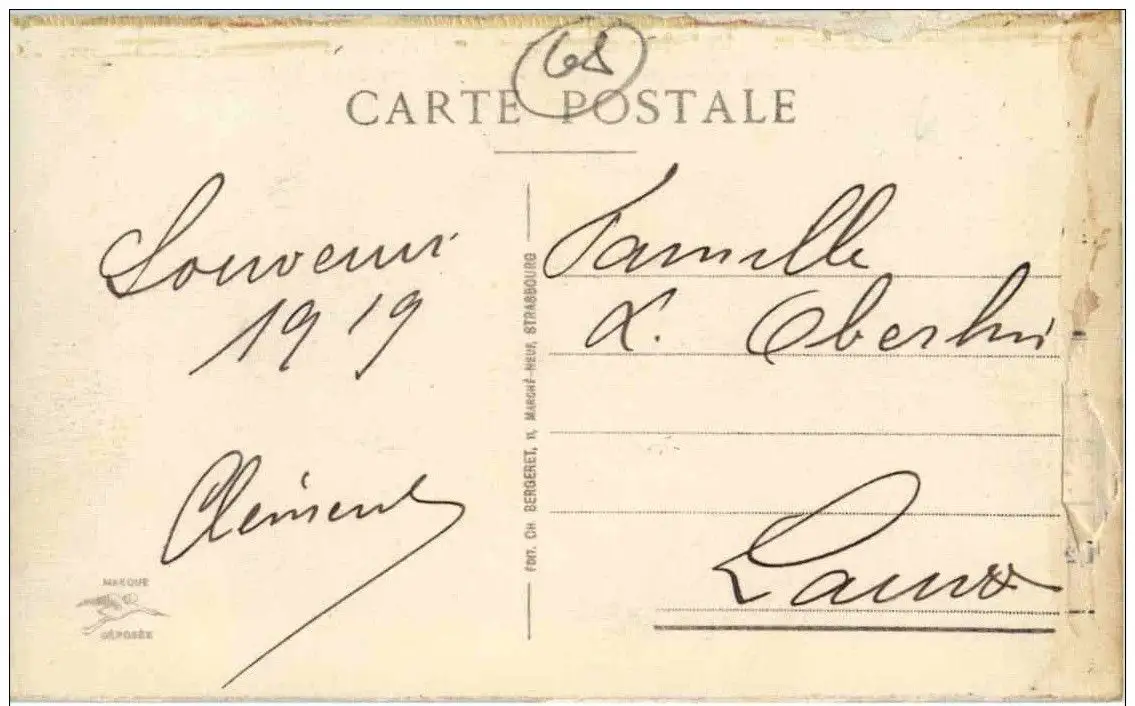 68
CARTE POSTALE
Souvenir
1919
Clément
MARQUE
DÉPOSÉE
ÉDIT. CH. BERGERET, 11, MARCHÉ-NEUF, STRASBOURG
Famille
L. Oberlin